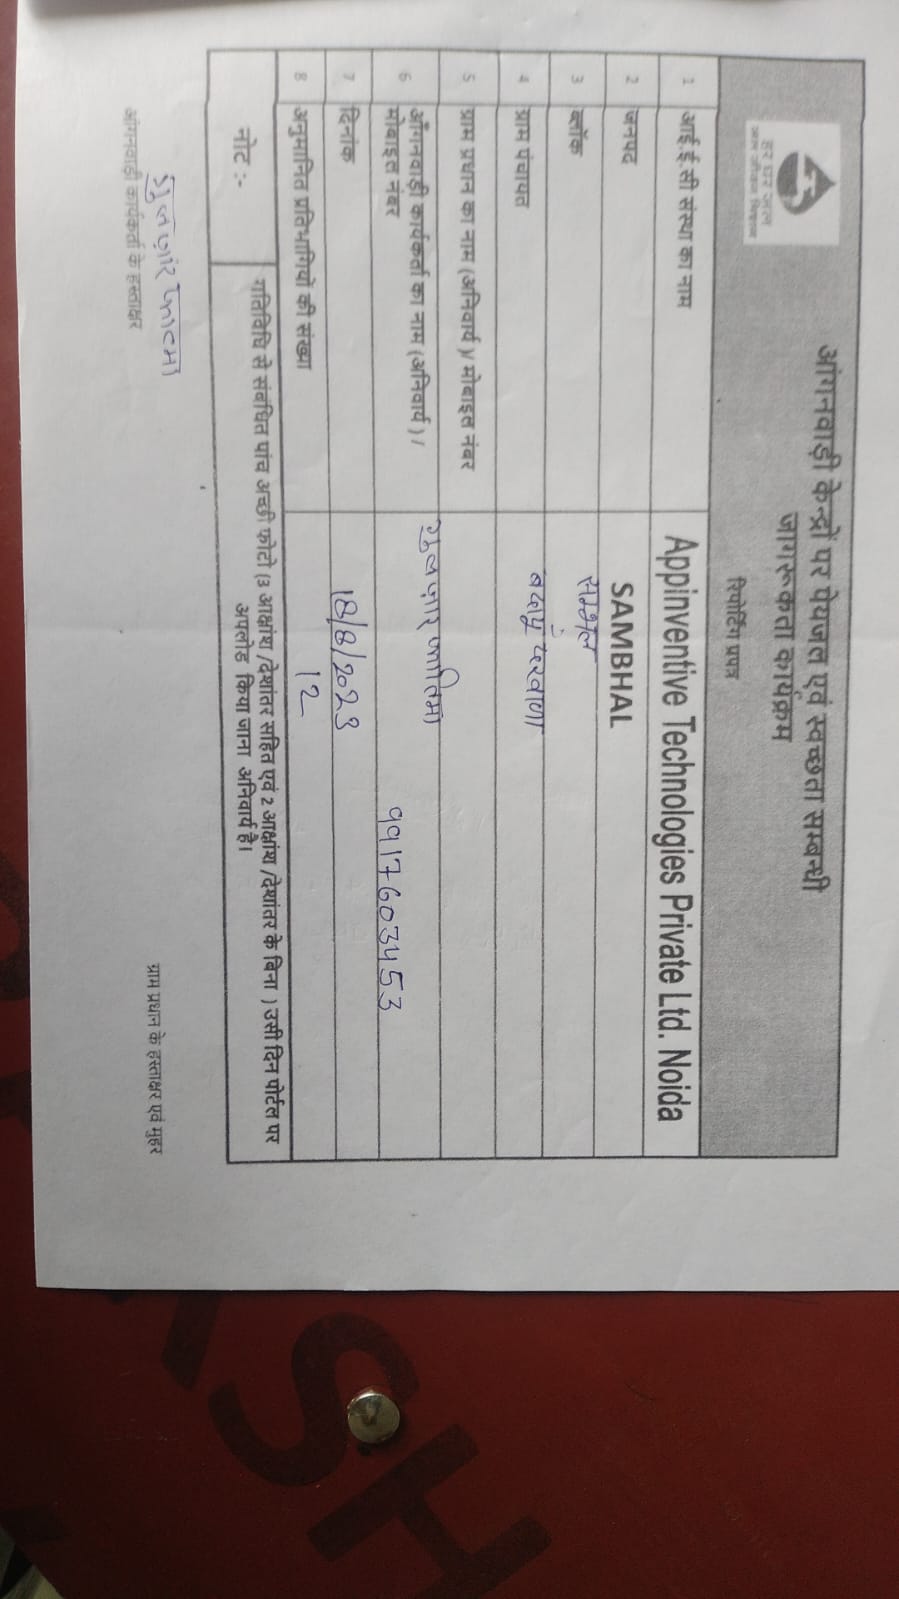 हर घर जल
जल जीवन मिशन
आंगनवाड़ी केन्द्रों पर पेयजल एवं स्वच्छता सम्बन्धी
जागरूकता कार्यक्रम
रिपोर्टिंग प्रपत्र
1 आई.ई.सी संस्था का नाम Appinventive Technologies Private Ltd. Noida
2 जनपद SAMBHAL
3 ब्लॉक सम्भल
4 ग्राम पंचायत
5 ग्राम प्रधान का नाम (अनिवार्य)/ मोबाइल नंबर
6 आँगनवाड़ी कार्यकर्ता का नाम (अनिवार्य) /
मोबाइल नंबर 9917603453
7 दिनांक 18/8/2023
8 अनुमानित प्रतिभागियों की संख्या 12
नोट :- गतिविधि से संबंधित पांच अच्छी फोटो (3 आक्षांश /देशांतर सहित एवं 2 आक्षांश /देशांतर के बिना ) उसी दिन पोर्टल पर
अपलोड किया जाना अनिवार्य है।
आंगनवाड़ी कार्यकर्ता के हस्ताक्षर
ग्राम प्रधान के हस्ताक्षर एवं मुहर